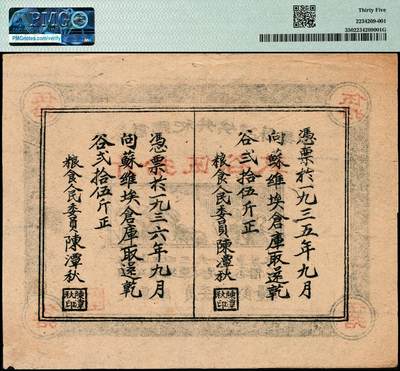 PMG
PMGnotes.com/verify
Thirty Five
2234209-001
3302234209001G
憑票於一九三五年九月
向蘇維埃倉庫取還乾
谷弍拾伍斤正
粮食人民委員陳潭秋
陳潭秋印
憑票於一九三六年九月
向蘇維埃倉庫取還乾
谷弍拾伍斤正
粮食人民委員陳潭秋
陳潭秋印